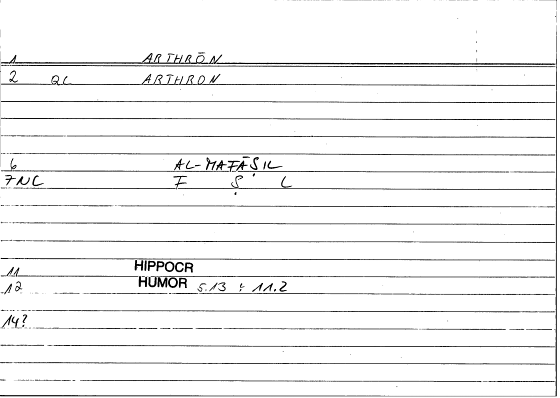 1 ARTHRŌN
2 QC ARTHRON
6 AL-MAFĀṢIL
7NC F Ṣ L
11 HIPPOCR
12 HUMOR 5.13 : 11.2
14?